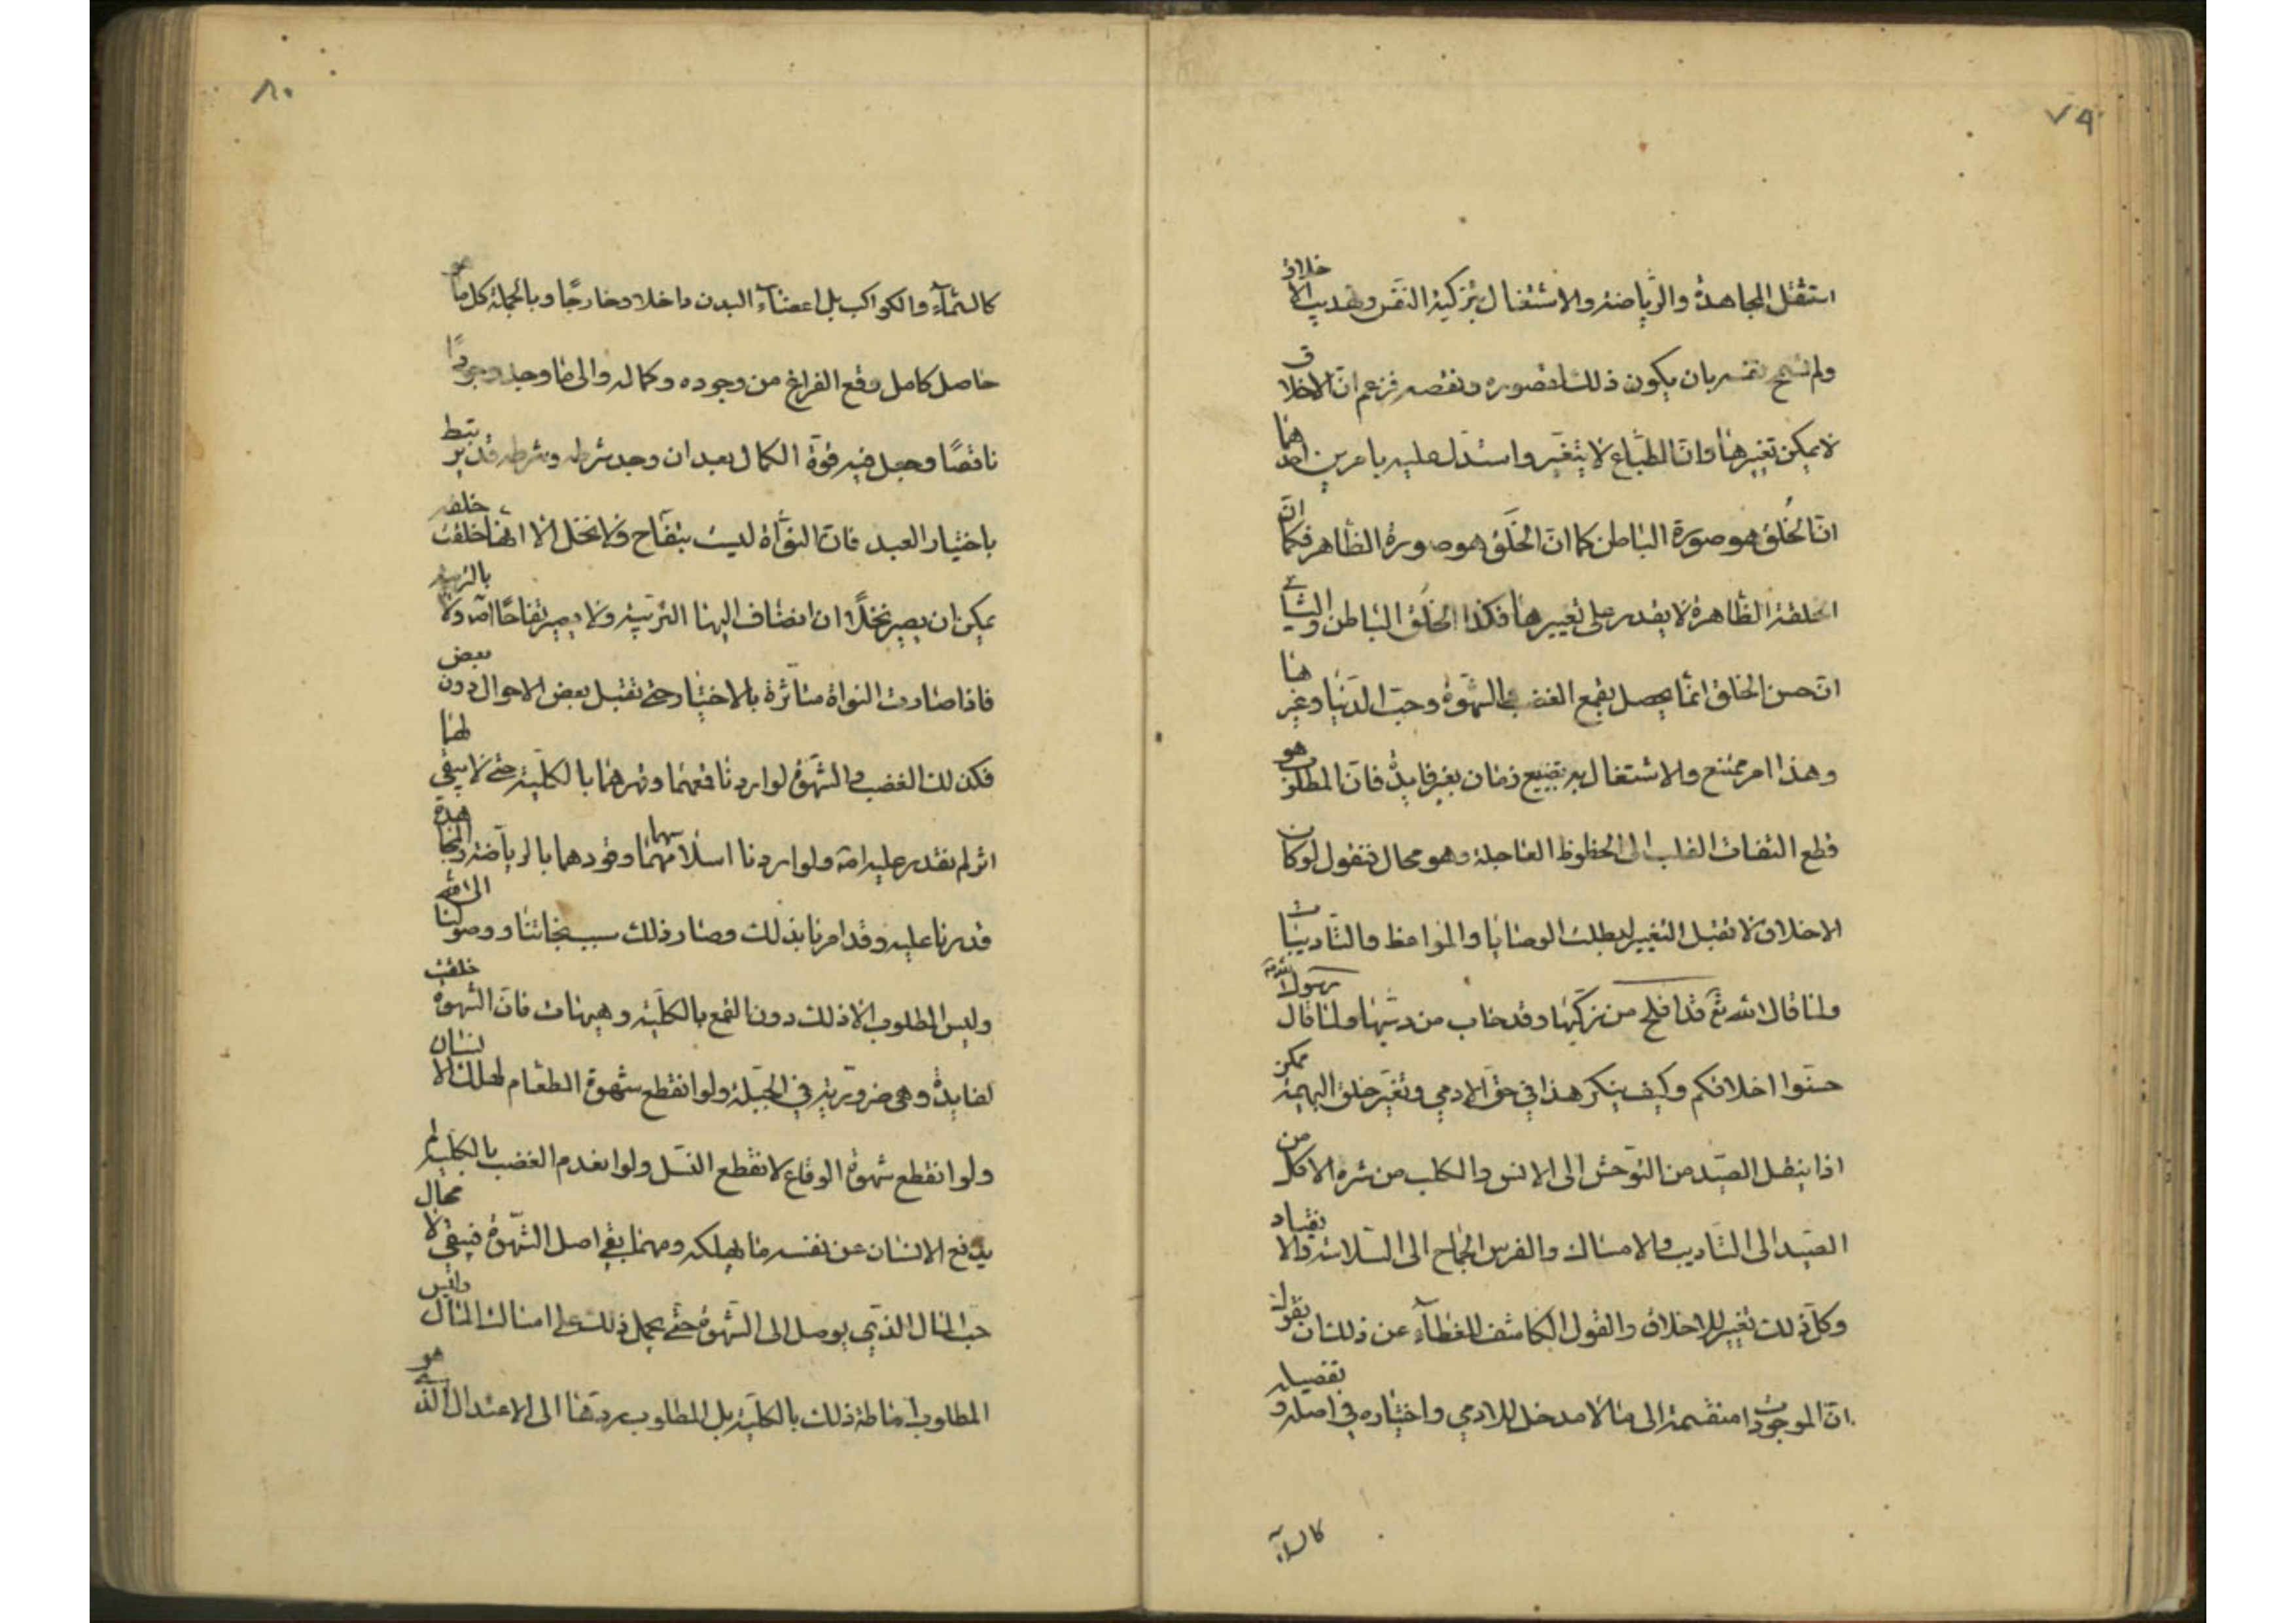 ٧٩
استثقل المجاهدة والرياضة والاشتغال بتزكية النفس وتهذيب الاخلاق
ولم تسمح نفسه بان يكون ذلك لقصوره ونقصه فزعم ان الاخلاق
لا يمكن تغييرها وان الطباع لا يتغير واستدل عليه بامرين احدهما
ان الخُلق هو صورة الباطن كما ان الخَلق هو صورة الظاهر فكما ان
الخلقة الظاهرة لا يقدر على تغييرها فكذا الخلق الباطن والثاني
ان حسن الخلق انما يحصل بقمع الغضب والشهوة وحب الدنيا وغيرها
وهذا امر ممتنع والاشتغال به تضييع زمان بغير فايدة فان المطلوب هو
قطع التفات القلب الى الحظوظ العاجلة وهو محال فنقول لو كان
الاخلاق لا تقبل التغيير لبطلت الوصايا والمواعظ والتأديبات
ولما قال الله تع قد افلح من زكيها وقد خاب من دسيها ولما قال رسول الله ص
حسنوا اخلاقكم وكيف ينكر هذا في حق الادمي وتغير خلق البهيمة ممكن
اذ ينقل الصيد من التوحش الى الانس والكلب من شره الاكل من
الصيد الى التأديب والامساك والفرس الجماح الى السلاسة والانقياد
وكل ذلك تغيير للاخلاق والقول الكاشف للغطآء عن ذلك ان نقول
ان الموجودات منقسمة الى ما لا مدخل للادمي واختياره في اصله وتفصيله
كالسمآء
٨٠
كالسمآء والكواكب بل اعضآء البدن داخلا وخارجًا وبالجملة كل ما هو
حاصل كامل وقع الفراغ من وجوده وكماله والى ما وجد وجودًا
ناقصًا وجعل فيه قوة الكمال بعد ان وجد شرطه وشرطه قد يرتبط
باختيار العبد فان النواة ليست بتفاح ولا نخل الا انها خلقت خلقة
يمكن ان يصير نخلًا ان انضاف اليها التربية ولا يصير تفاحًا اصلا ولا بالتربية
فاذا صارت النواة متأثرة بالاختيار حتى تقبل بعض الاحوال دون بعض
فكذلك الغضب والشهوة لو اردنا قمعهما وقهرهما بالكلية حتى لا يبقى لهما
اثر لم نقدر عليه اصلا ولو اردنا اسلاسهما وقودهما بالرياضة والمجاهدة
قدرنا عليه وقد امرنا بذلك وصار ذلك سبب نجاتنا ووصولنا الى الله
وليس المطلوب الا ذلك دون القمع بالكلية وهيهات فان الشهوة خلقت
لفايدة وهى ضرورية في الجبلة ولو انقطع شهوة الطعام لهلك الانسان
ولو انقطع شهوة الوقاع لانقطع النسل ولو انعدم الغضب بالكلية لم
يدفع الانسان عن نفسه ما يهلكه ومهما بقي اصل الشهوة فيبقى لا محال
حب المال الذي يوصل الى الشهوة حتى يحمل ذلك على امساك المال وليس
المطلوب اماطة ذلك بالكلية بل المطلوب ردها الى الاعتدال الذي هو